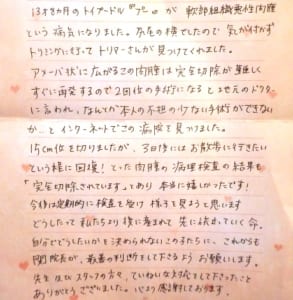 13才8ヵ月のトイプードル"プピ"が 軟部組織悪性肉腫
という病気になりました。存在の様でしたので 気が付かず
トリミングに行って トリマーさんが見つけてくれました。
アメーバ状に広がるこの肉腫は完全切除が難しく
すぐに再発するので2回位の手術になると 元のドクター
に言われ、なんとか本人の不担の少ない手術ができない
か…とインターネットでこの病院を見つけました。
15cm位を切りましたが、3日後にはお散歩に行きたい
という様に回復！とった肉腫の病理検査の結果も
「完全切除されています」とあり 本当に嬉しかったです！
今後は定期的に検査を受け 様子を見ようと思います
どうしたって私たちより後に産まれて 先に逝ってゆく命。
自分でどうしたいかを決められないこの子たちに、これからも
関院長が、最善の判断をして下さるよう お願いします。
先生及びスタッフの方々、ていねいな対応をして下さったこと
ありがとうございました。心より感謝しております。